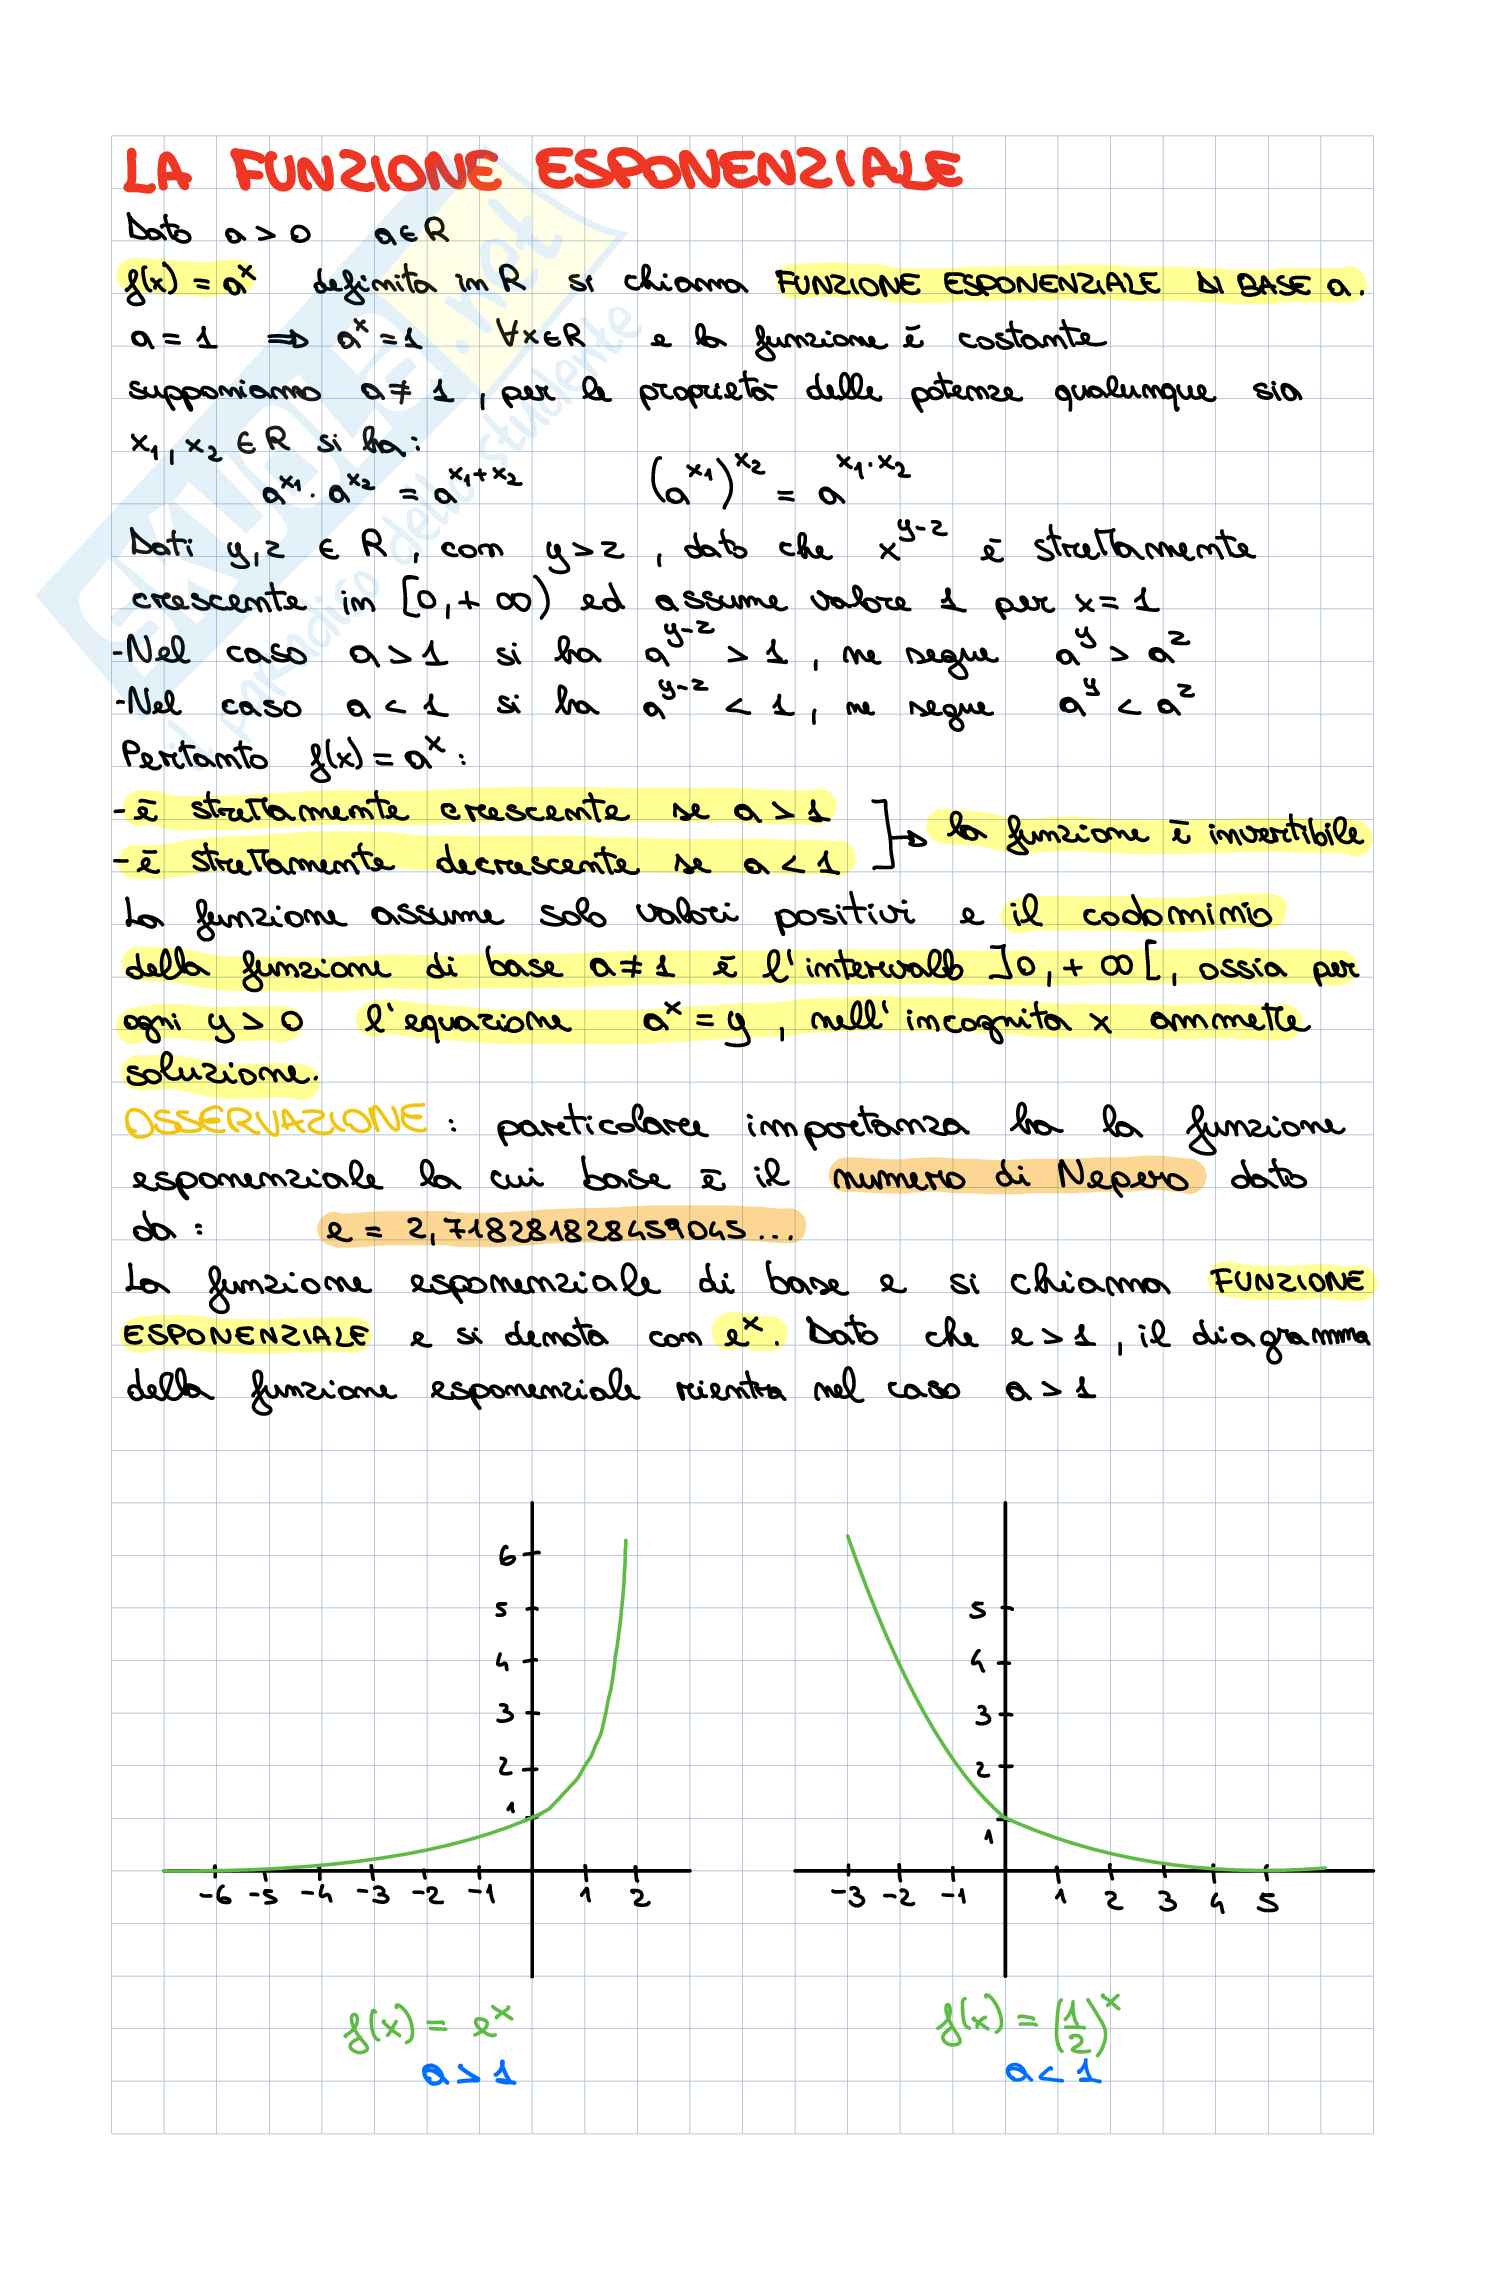 LA FUNZIONE ESPONENZIALE
Dato a > 0 a ∈ R
f(x) = a^x definita in R si chiama FUNZIONE ESPONENZIALE DI BASE a.
a = 1 ⇒ a^x = 1 ∀x ∈ R e la funzione è costante
supponiamo a ≠ 1, per le proprietà delle potenze qualunque sia
x₁, x₂ ∈ R si ha:
a^x₁ · a^x₂ = a^(x₁+x₂) (a^x₁)^x₂ = a^(x₁·x₂)
Dati y, z ∈ R, con y > z, dato che x^(y-z) è strettamente
crescente in [0, +∞) ed assume valore 1 per x = 1
-Nel caso a > 1 si ha a^(y-z) > 1, ne segue a^y > a^z
-Nel caso a < 1 si ha a^(y-z) < 1, ne segue a^y < a^z
Pertanto f(x) = a^x:
- è strettamente crescente se a > 1
- è strettamente decrescente se a < 1
la funzione è invertibile
La funzione assume solo valori positivi e il codominio
della funzione di base a ≠ 1 è l'intervallo ]0, +∞[, ossia per
ogni y > 0 l'equazione a^x = y, nell'incognita x ammette
soluzione.
OSSERVAZIONE : particolare importanza ha la funzione
esponenziale la cui base è il numero di Nepero dato
da : e = 2,718281828459045...
La funzione esponenziale di base e si chiama FUNZIONE
ESPONENZIALE e si denota con e^x. Dato che e > 1, il diagramma
della funzione esponenziale rientra nel caso a > 1
6
5
4
3
2
1
-6 -5 -4 -3 -2 -1 1 2
f(x) = e^x
a > 1
5
4
3
2
1
-3 -2 -1 1 2 3 4 5
f(x) = (1/2)^x
a < 1
SKUOLA.net
il paradiso dello studente